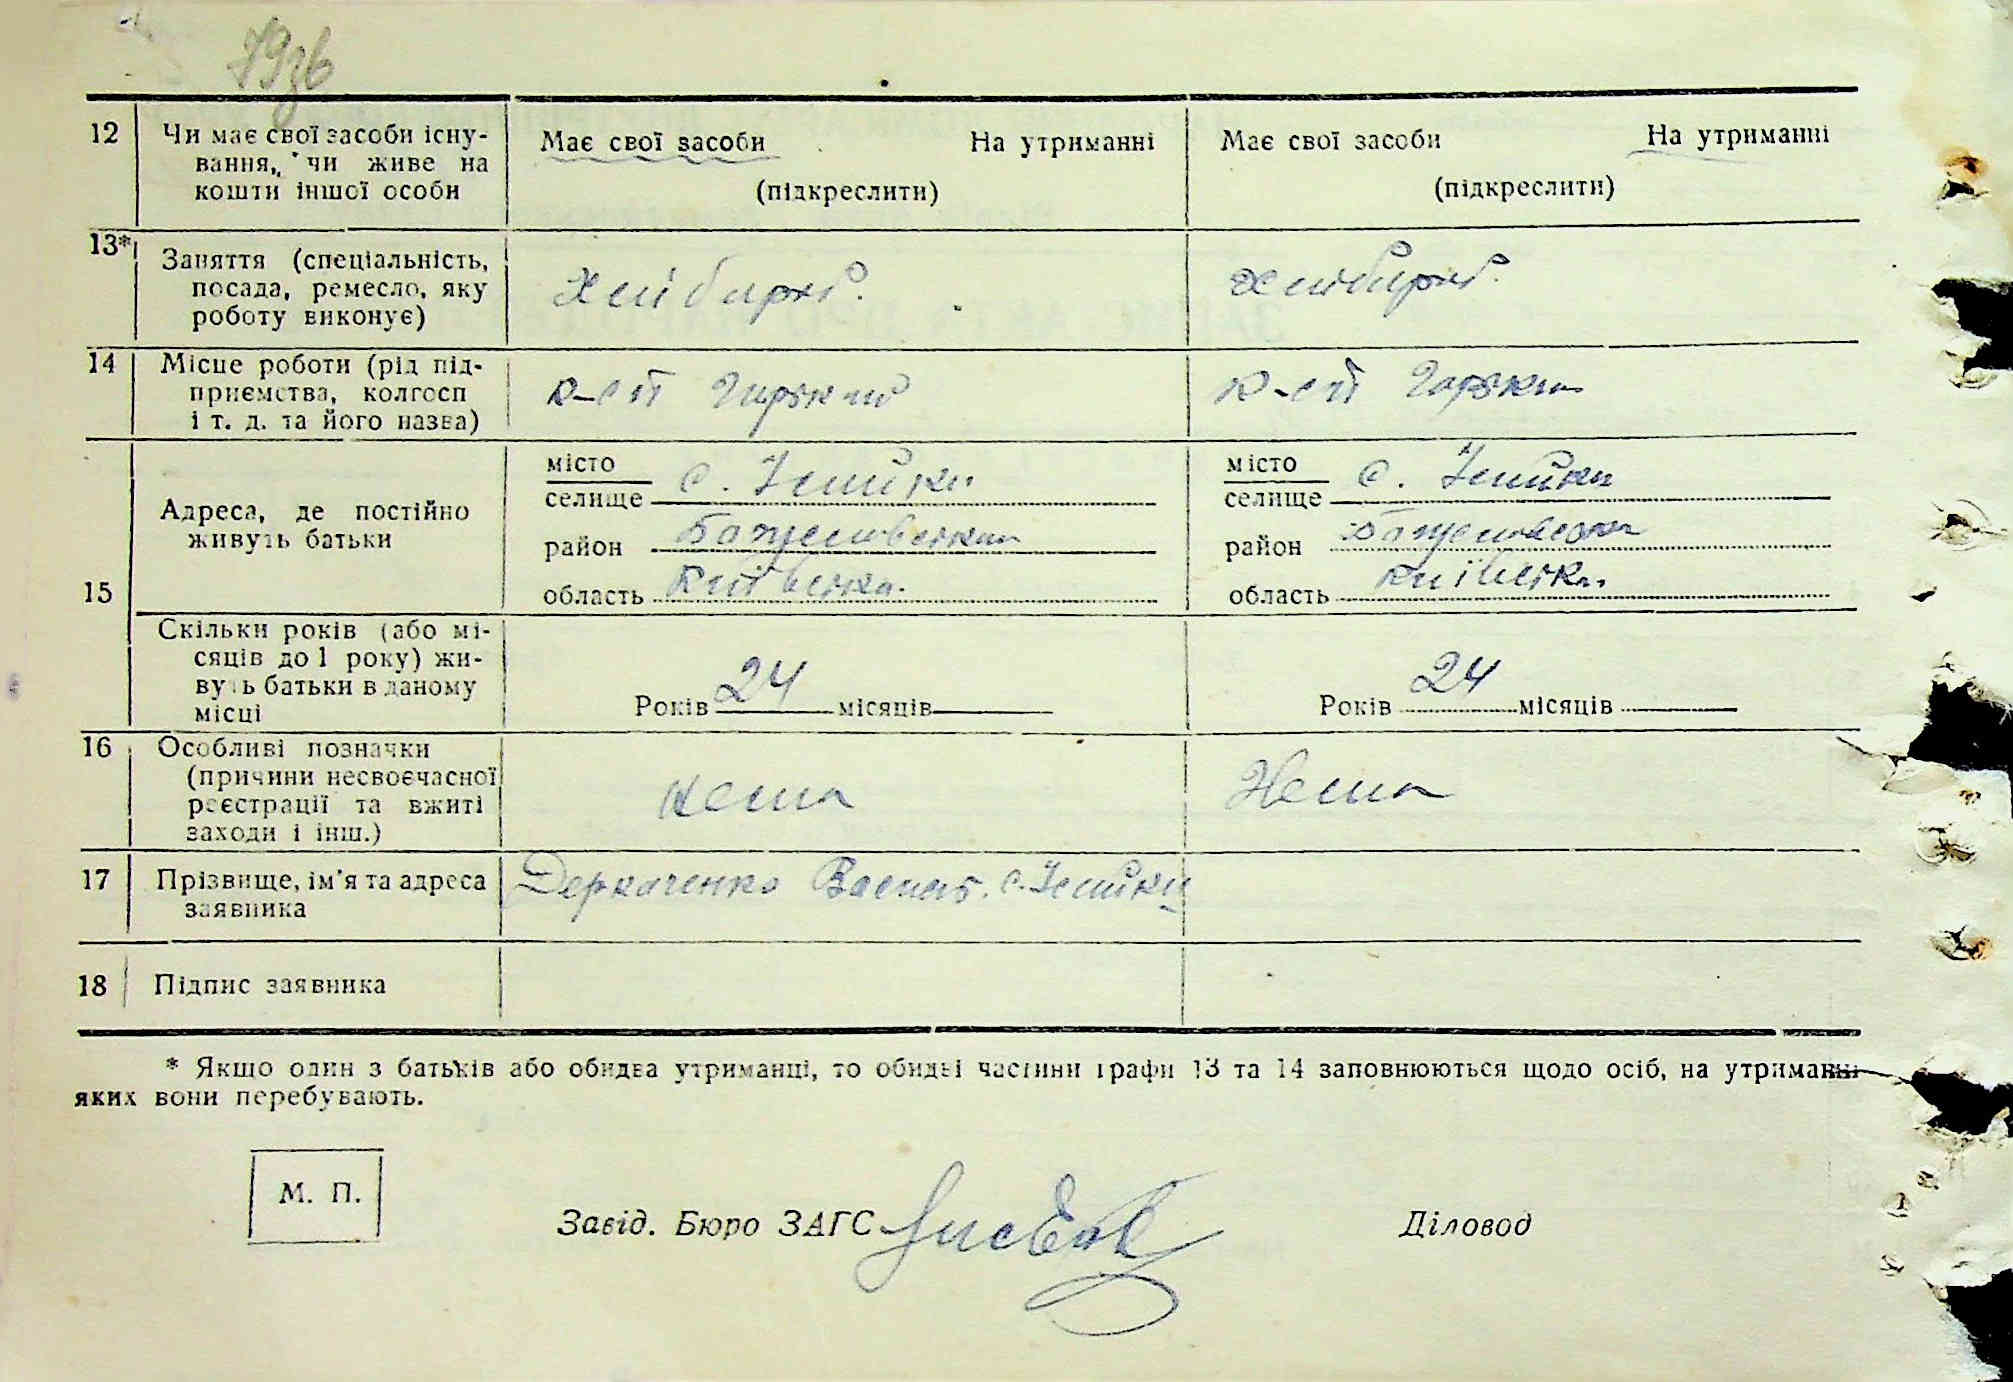 79зв
12 Чи має свої засоби існу- Має свої засоби На утриманні Має свої засоби На утриманні
вання, чи живе на
кошти іншої особи (підкреслити) (підкреслити)
13* Заняття (спеціальність, Хлібороб. Хлібороб.
посада, ремесло, яку
роботу виконує)
14 Місце роботи (рід під- к-сп Горький к-сп Горьким
приємства, колгосп
і т. д. та його назва)
15 Адреса, де постійно живуть батьки
місто селище с. район область Київська. місто селище с. район область Київська.
Скільки років (або мі-
сяців до 1 року) жи-
вуть батьки в даному
місці
Років 24 місяців Років 24 місяців
16 Особливі позначки
(причини несвоєчасної
реєстрації та вжиті
заходи і інш.)
Нема Нема
17 Прізвище, ім'я та адреса Деркаченко с.
заявника
18 Підпис заявника
* Якщо один з батьків або обидва утриманці, то обидві частини графи 13 та 14 заповнюються щодо осіб, на утриманні
яких вони перебувають.
М. П.
Завід. Бюро ЗАГС Діловод